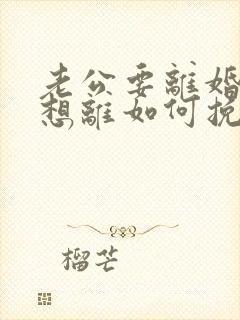 老公要離婚
想離如何挽
榴芒